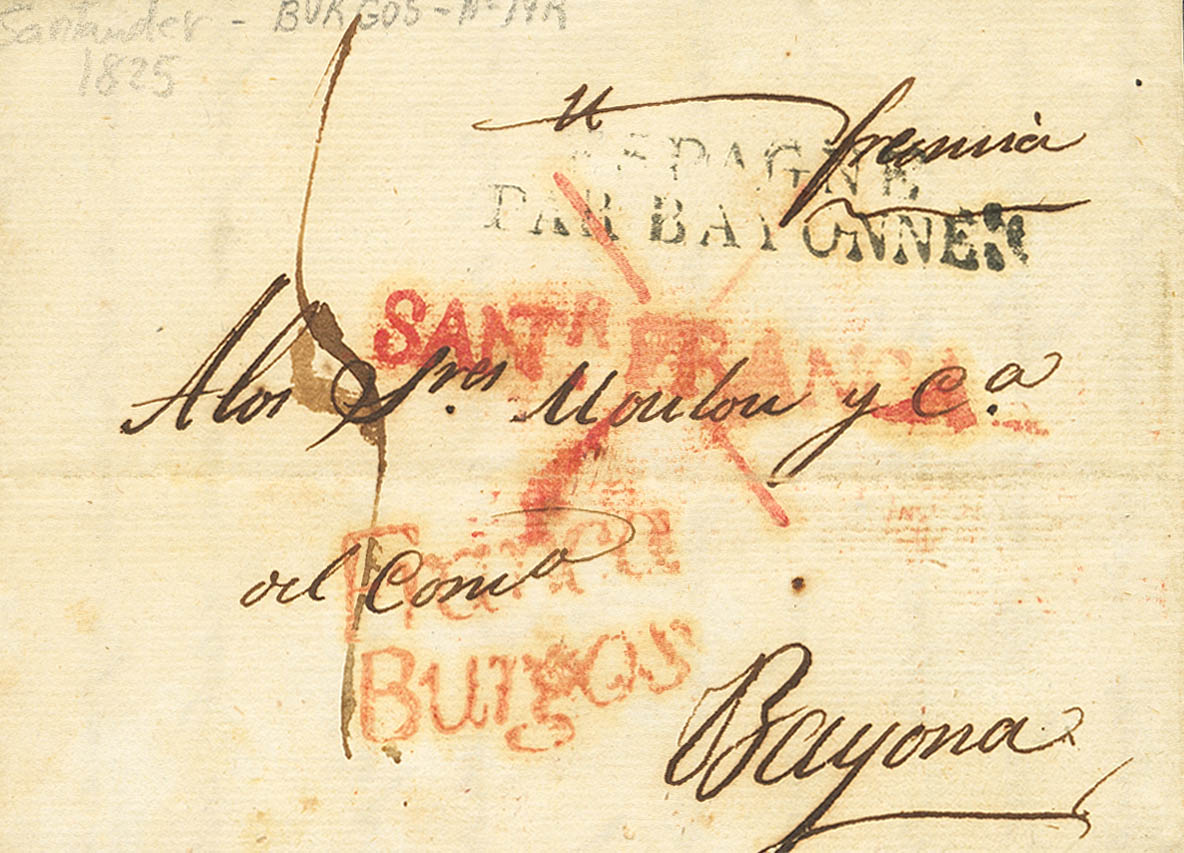 Santander - BURGOS - Nº 14R
1825
francia
ESPAGNE
PAR BAYONNE
SANTR FRANCA
A los Sres Moulou y C.a
Franca
del Como
BUrgos
Bayona